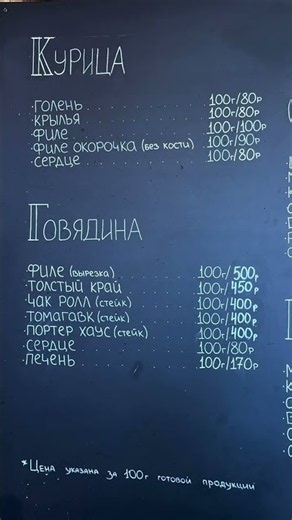 Курица
голень 100г/80р
крылья 100г/80р
филе 100г/100р
филе окорочка (без кости) 100г/90р
сердце 100г/80р
Говядина
филе (вырезка) 100г/500р
толстый край 100г/450р
чак ролл (стейк) 100г/400р
томагавк (стейк) 100г/400р
портер хаус (стейк) 100г/400р
сердце 100г/80р
печень 100г/170р
*Цена указана за 100г готовой продукции